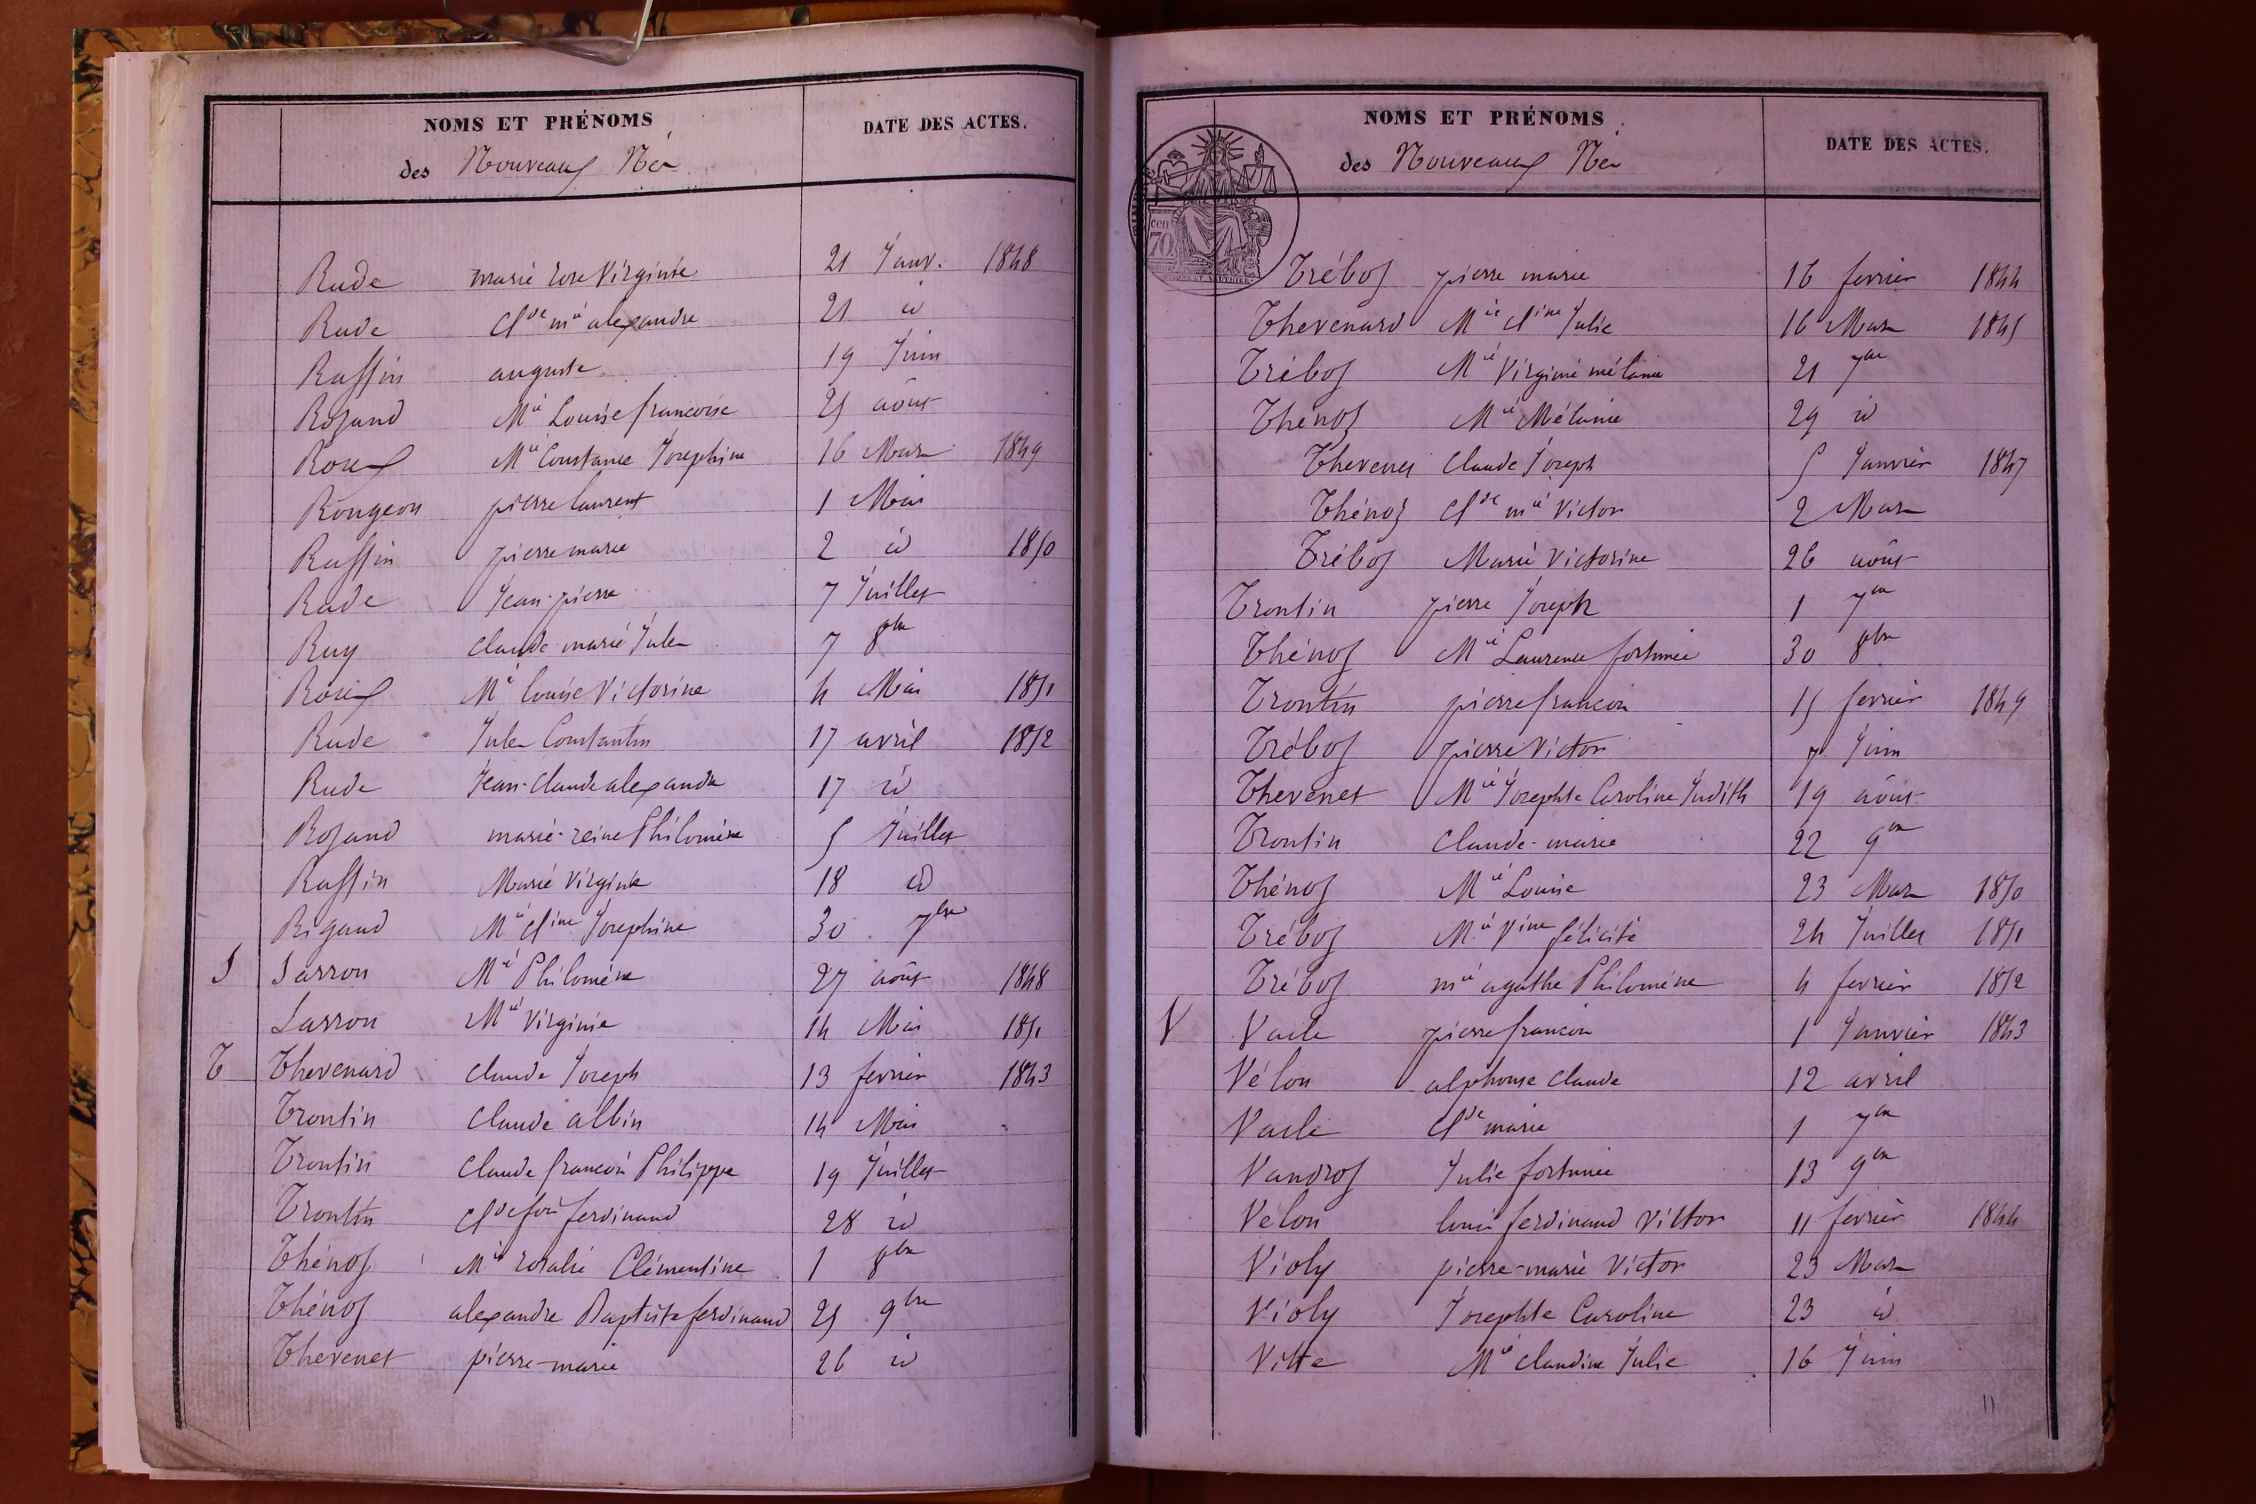 NOMS ET PRÉNOMS
DATE DES ACTES.
des Nouveaux Nés
Rude marie rose Virginie 21 Janv. 1848
Rude Cl de m ie alexandre 21 id
Raffin auguste 19 Juin
Rozand M ie Louise francoise 25 août
Roux M ie Constance Josephine 16 Mars 1849
Rougeon pierre laurent 1 Mai
Raffin pierre marie 2 id 1850
Rude Jean-pierre 7 Juillet
Ruy claude marie Jules 7 8bre
Roux M ie louise Victorine 4 Mai 1851
Rude Jules Constantin 17 avril 1852
Rude Jean-Claude alexandre 17 id
Rozand marie-reine Philomène 5 Juillet
Raffin Marie Virginie 18 id
Rigaud M ie Cl ine Josephine 30 7bre
S Sarron M ie Philomène 27 août 1848
Sarron M ie Virginie 14 Mai 1851
T Thevenard Claude Joseph 13 fevrier 1843
Trontin Claude albin 14 Mai
Trontin Claude francois Philippe 19 Juillet
Trontin Cl de fois ferdinand 28 id
Thénoz M ie rosalie Clémentine 1 8bre
Thénoz alexandre Baptiste ferdinand 25 9bre
Thevenet pierre-marie 26 id
NOMS ET PRÉNOMS
DATE DES ACTES.
des Nouveaux Nés
70
Tréboz pierre marie 16 fevrier 1844
Thevenard M ie Cl ine Julie 16 Mars 1845
Tréboz M ie Virginie mélanie 21 7bre
Thenoz M ie Mélanie 29 id
Thevenet Claude Joseph 5 Janvier 1847
Thénoz Cl de m ie Victor 2 Mars
Tréboz Marie Victorine 26 août
Trontin pierre Joseph 1 7bre
Thénoz M ie Laurence fortunée 30 8bre
Trontin pierre francois 15 fevrier 1849
Tréboz pierre Victor 7 Juin
Thevenet M ie Josephte Caroline Judith 19 août
Trontin Claude-marie 22 9bre
Thénoz M ie Louise 23 Mars 1850
Tréboz M ie V ine félicité 24 Juillet 1851
Tréboz m ie agathe Philomène 4 fevrier 1852
V Vacle pierre francois 1 Janvier 1843
Vélon alphonse Claude 12 avril
Vacle Cl de marie 1 7bre
Vandroz Julie fortunée 13 9bre
Velon louis ferdinand Victor 11 fevrier 1844
Violy pierre-marie Victor 23 Mars
Violy Josephte Caroline 23 id
Vitte M ie Claudine Julie 16 Juin